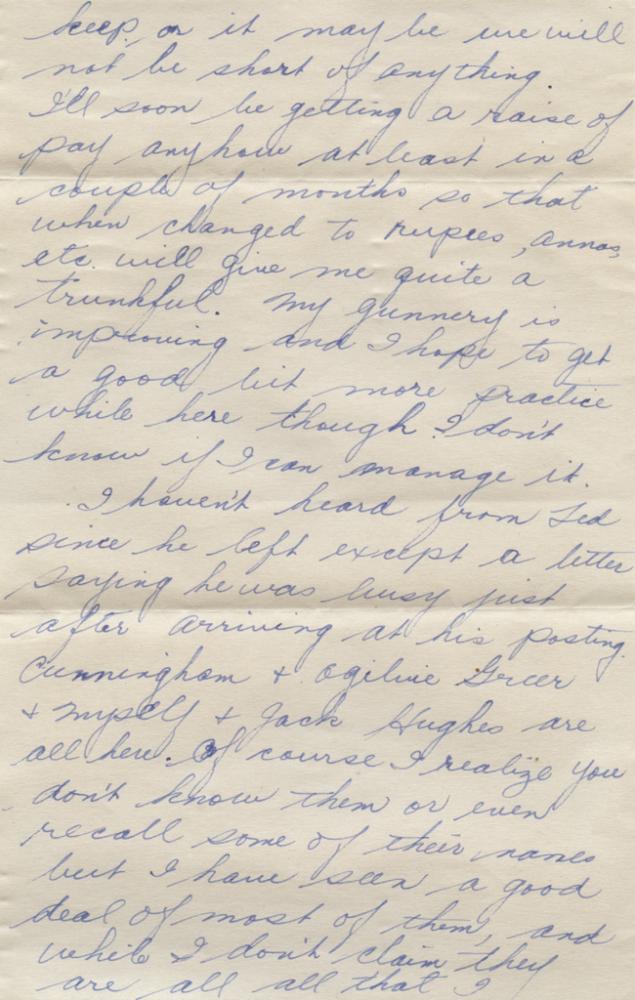 keep, or it may be we will
not be short of anything.
I'll soon be getting a raise of
pay anyhow at least in a
couple of months so that
when changed to rupees, annas,
etc. will give me quite a
trunkful. My gunnery is
improving and I hope to get
a good bit more practice
while here though I don't
know if I can manage it.
I haven't heard from Ted
since he left except a letter
saying he was busy just
after arriving at his posting.
Cunningham + Ogilvie Greer
+ myself + Jack Hughes are
all here. Of course I realize you
don't know them or even
recall some of their names
but I have seen a good
deal of most of them, and
while I don't claim they
are all all that I